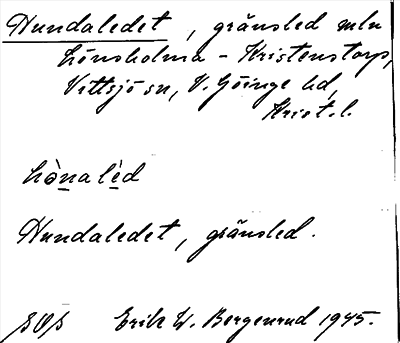 Hundaledet, gränsled mln
Lönsholma - Kristenstorp,
Vittsjö sn, V. Göinge hd,
Krist. l.
hònalèd
Hundaledet, gränsled.
SOS Erik W. Bergenrud 1945.